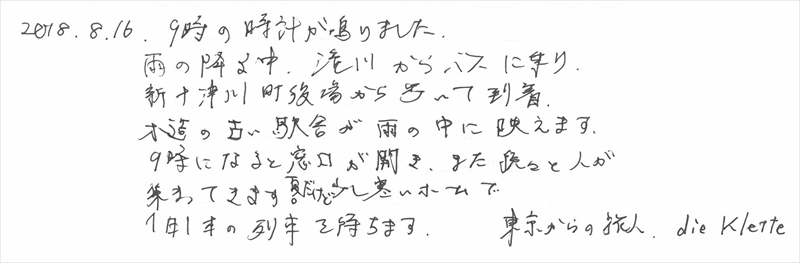 2018.8.16. 9時の時計が鳴りました.
雨の降る中. 滝川からバスに乗り.
新十津川町役場から歩いて到着.
木造の古い駅舎が雨の中に映えます.
9時になると窓口が開き、また段々と人が
集まってきます 夏だけど少し寒いホームで
1日1本の列車を待ちます. 東京からの旅人. die Klette